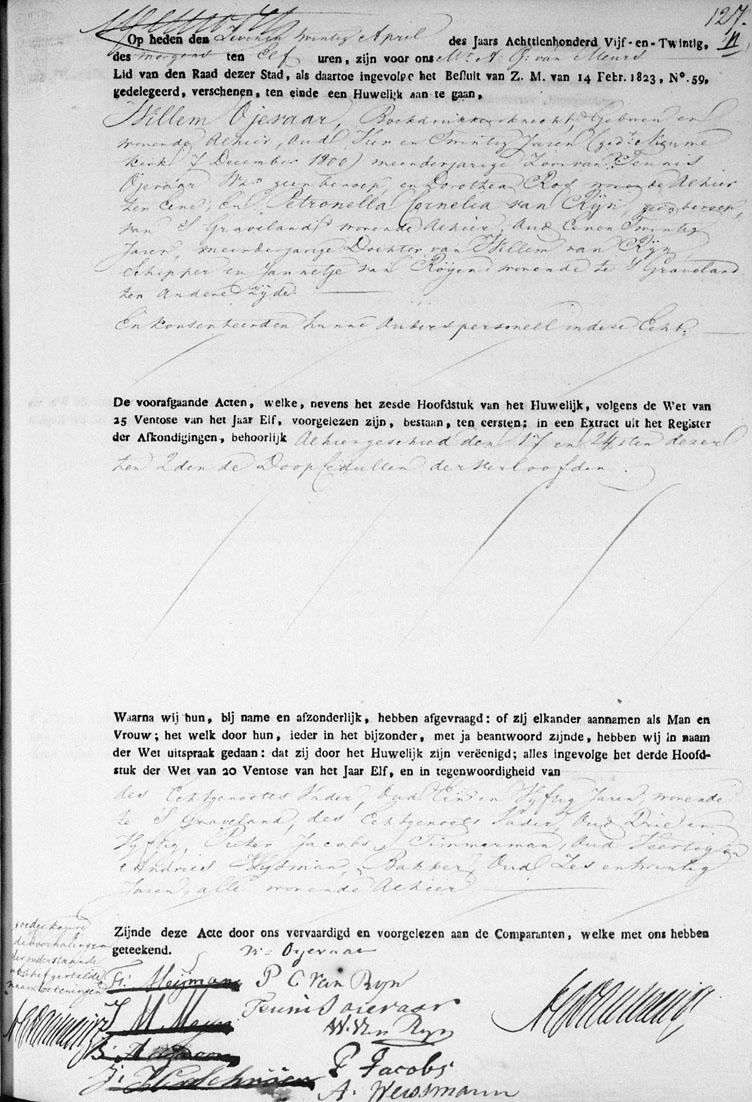 127.
Op heden den Zevenen twintig April des Jaars Achttienhonderd Vijf-en-Twintig,
des morgens ten Elf uren, zijn voor ons Mr. A. P. van Meurs
Lid van den Raad dezer Stad, als daartoe ingevolge het Besluit van Z. M. van 14 Febr. 1823, No. 59,
gedelegeerd, verschenen, ten einde een Huwelijk aan te gaan,
Willem Ojevaar, Boekdrukkersknecht, Geboren en
wonende Alhier, Oud Vier en Twintig Jaren (ged: Nieuwe
kerk 7 December 1800) meerderjarige Zoon van Teunis
Ojevaar geen beroep, en Dorothea Rod wonende Alhier
ten Eene; en Petronella Cornelia van Rijn, geen beroep,
van S Graveland, wonende Alhier, Oud Eenen Twintig
Jaren, meerderjarige Dochter van Willem van Rijn,
Schipper en Jannetje van Rooijen wonende te S Graveland
ten Andere Zijde.
En konsenteerden hunne Ouders personeel in deze Echt.
De voorafgaande Acten, welke, nevens het zesde Hoofdstuk van het Huwelijk, volgens de Wet van
25 Ventose van het Jaar Elf, voorgelezen zijn, bestaan, ten eersten: in een Extract uit het Register
der Afkondigingen, behoorlijk Alhier geschied den 17 en 24sten dezer
ten 2den de Doopcedullen der verloofden.
Waarna wij hun, bij name en afzonderlijk, hebben afgevraagd: of zij elkander aannamen als Man en
Vrouw; het welk door hun, ieder in het bijzonder, met ja beantwoord zijnde, hebben wij in naam
der Wet uitspraak gedaan: dat zij door het Huwelijk zijn verëenigd; alles ingevolge het derde Hoofd-
stuk der Wet van 20 Ventose van het Jaar Elf, en in tegenwoordigheid van
des Echtgenootes Vader, Oud Een en Vijftig Jaren, wonende
te S Graveland, des Echtgenoots Vader, Oud Drie en
Vijftig, Pieter Jacobs, Timmerman, Oud Veertig en
Andries Weijdman, Bakker, Oud Zes en twintig
Jaren, alle wonende Alhier.
Zijnde deze Acte door ons vervaardigd en voorgelezen aan de Comparanten, welke met ons hebben
geteekend.
goedgekeurd
de doorhalingen
der onderstaande
naamteekeningen
W: Ojevaar
P C Van Ryn
Teunis oievaar
W. Van Ryn
P Jacobs
A. Weissmann